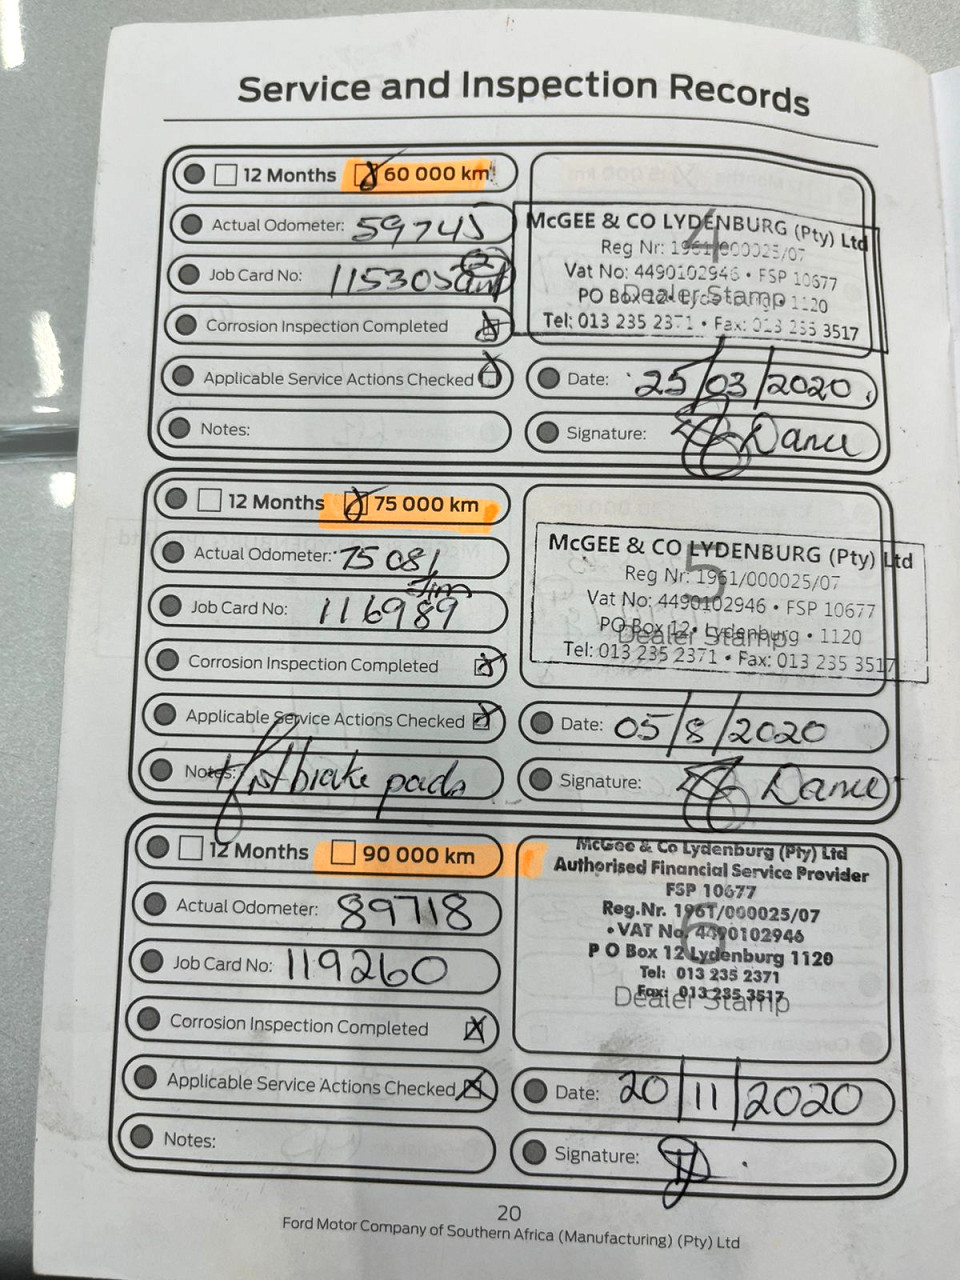 Service and Inspection Records
12 Months 60 000 km
Actual Odometer: 59745
Job Card No: 115305
Corrosion Inspection Completed
Applicable Service Actions Checked
Notes:
4
McGEE & CO LYDENBURG (Pty) Ltd
Reg Nr: 1961/000025/07
Vat No: 4490102946 • FSP 10677
PO Box 12 • Lydenburg • 1120
Dealer Stamp
Tel: 013 235 2371 • Fax: 013 235 3517
Date: 25/03/2020
Signature: Dance
12 Months 75 000 km
Actual Odometer: 75081
Job Card No: 116989
Corrosion Inspection Completed
Applicable Service Actions Checked
Notes: brake pads
5
McGEE & CO LYDENBURG (Pty) Ltd
Reg Nr: 1961/000025/07
Vat No: 4490102946 • FSP 10677
PO Box 12 • Lydenburg • 1120
Dealer Stamp
Tel: 013 235 2371 • Fax: 013 235 3517
Date: 05/8/2020
Signature: Dance
12 Months 90 000 km
Actual Odometer: 89718
Job Card No: 119260
Corrosion Inspection Completed
Applicable Service Actions Checked
Notes:
6
McGee & Co Lydenburg (Pty) Ltd
Authorised Financial Service Provider
FSP 10677
Reg.Nr. 1961/000025/07
• VAT No. 4490102946
P O Box 12 Lydenburg 1120
Tel: 013 235 2371
Fax: 013 235 3517
Dealer Stamp
Date: 20/11/2020
Signature:
20
Ford Motor Company of Southern Africa (Manufacturing) (Pty) Ltd